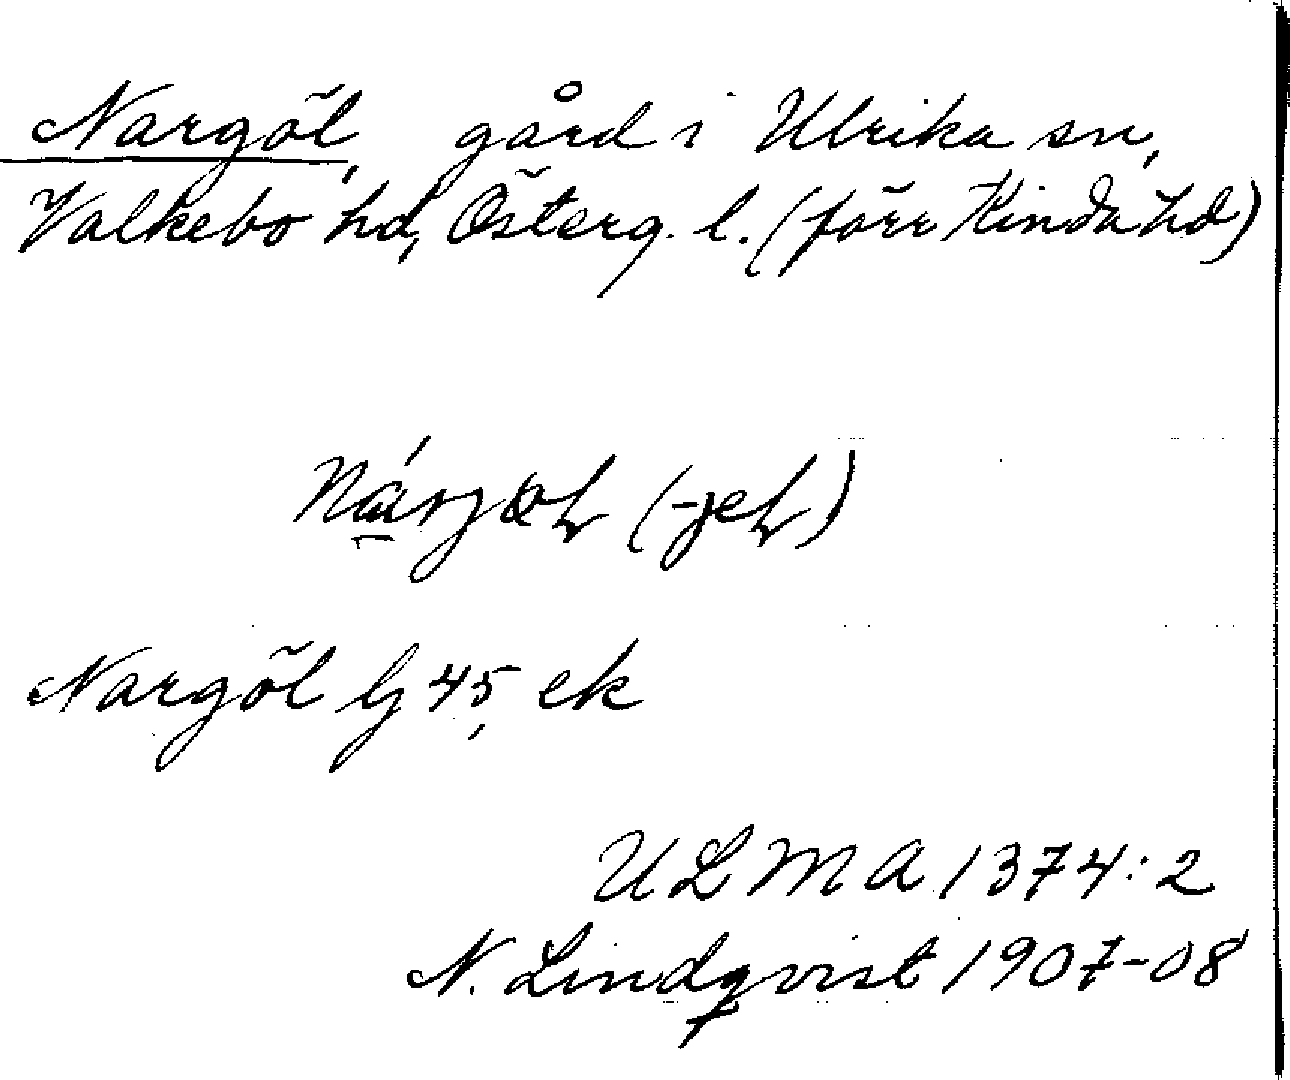 Nargöl, gård i Ulrika sn,
Valkebo hd, Österg. l. (förr Kinda hd)
Nargöl Gj 45, ek
ULMA 1374:2
N. Lindqvist 1907-08